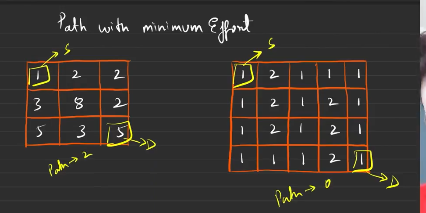 Path with minimum Effort
S
1 2 2
3 8 2
5 3 5
D
Path → 2
S
1 2 1 1 1
1 2 1 2 1
1 2 1 2 1
1 1 1 2 1
D
Path → 0